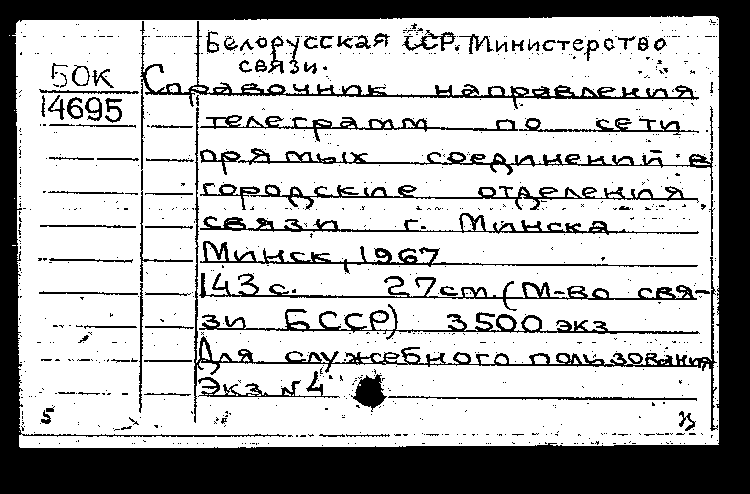 Белорусская ССР. Министерство
связи.
50К
14695
Справочник направления
телеграмм по сети
прямых соединений в
городские отделения
связи г. Минска
Минск, 1967
143 с. 27 см. (М-во свя-
зи БССР) 3500 экз
Для служебного пользования
Экз. №4
5